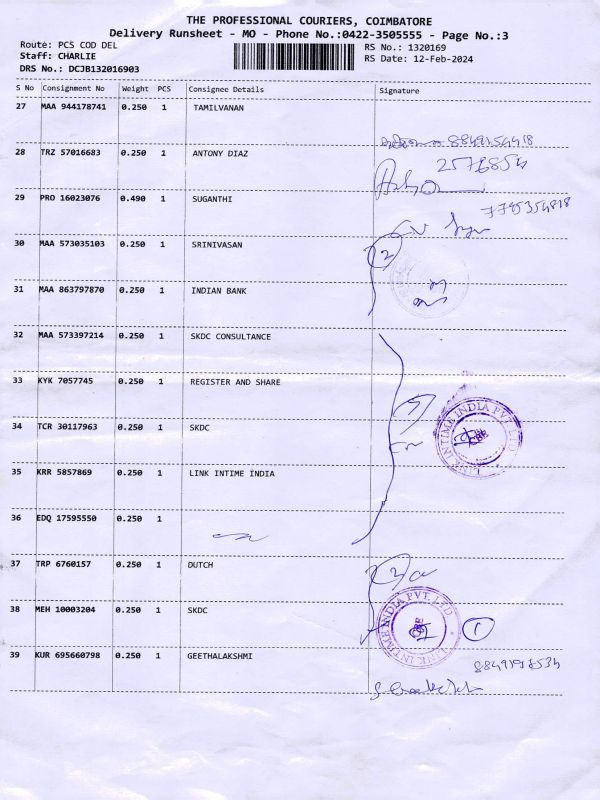 THE PROFESSIONAL COURIERS, COIMBATORE
Delivery Runsheet - MO - Phone No.:0422-3505555 - Page No.:3
Route: PCS COD DEL
RS No.: 1320169
Staff: CHARLIE
RS Date: 12-Feb-2024
DRS No.: DCJB132016903
S No Consignment No Weight PCS Consignee Details Signature
27 MAA 944178741 0.250 1 TAMILVANAN
28 TRZ 57016683 0.250 1 ANTONY DIAZ
29 PRO 16023076 0.490 1 SUGANTHI
30 MAA 573035103 0.250 1 SRINIVASAN
2
31 MAA 863797870 0.250 1 INDIAN BANK
32 MAA 573397214 0.250 1 SKDC CONSULTANCE
33 KYK 7057745 0.250 1 REGISTER AND SHARE
34 TCR 30117963 0.250 1 SKDC
LINK INTIME INDIA PVT. LTD
35 KRR 5857869 0.250 1 LINK INTIME INDIA
36 EDQ 17595550 0.250 1
37 TRP 6760157 0.250 1 DUTCH
38 MEH 10003204 0.250 1 SKDC
LINK INTIME INDIA PVT. LTD
1
39 KUR 695660798 0.250 1 GEETHALAKSHMI